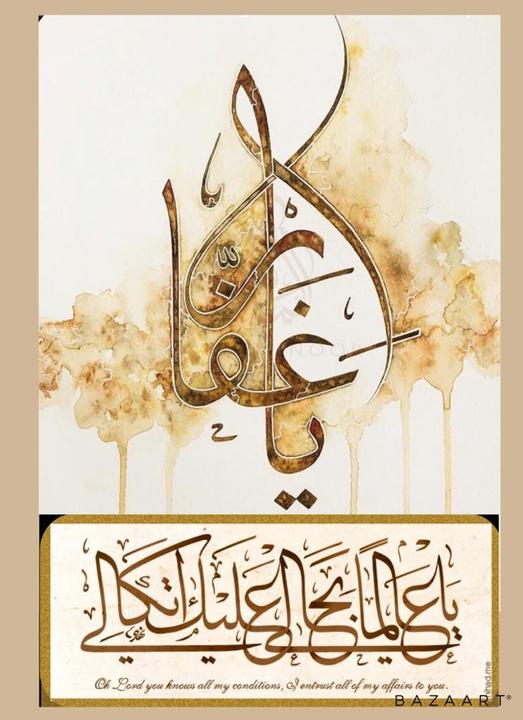 يا غفار
NOOR
يَا عَالِمًا بِحَالِي عَلَيْكَ اتِّكَالِي
Oh Lord you knows all my conditions, I entrust all of my affairs to you.
nihad.me
BAZAART®